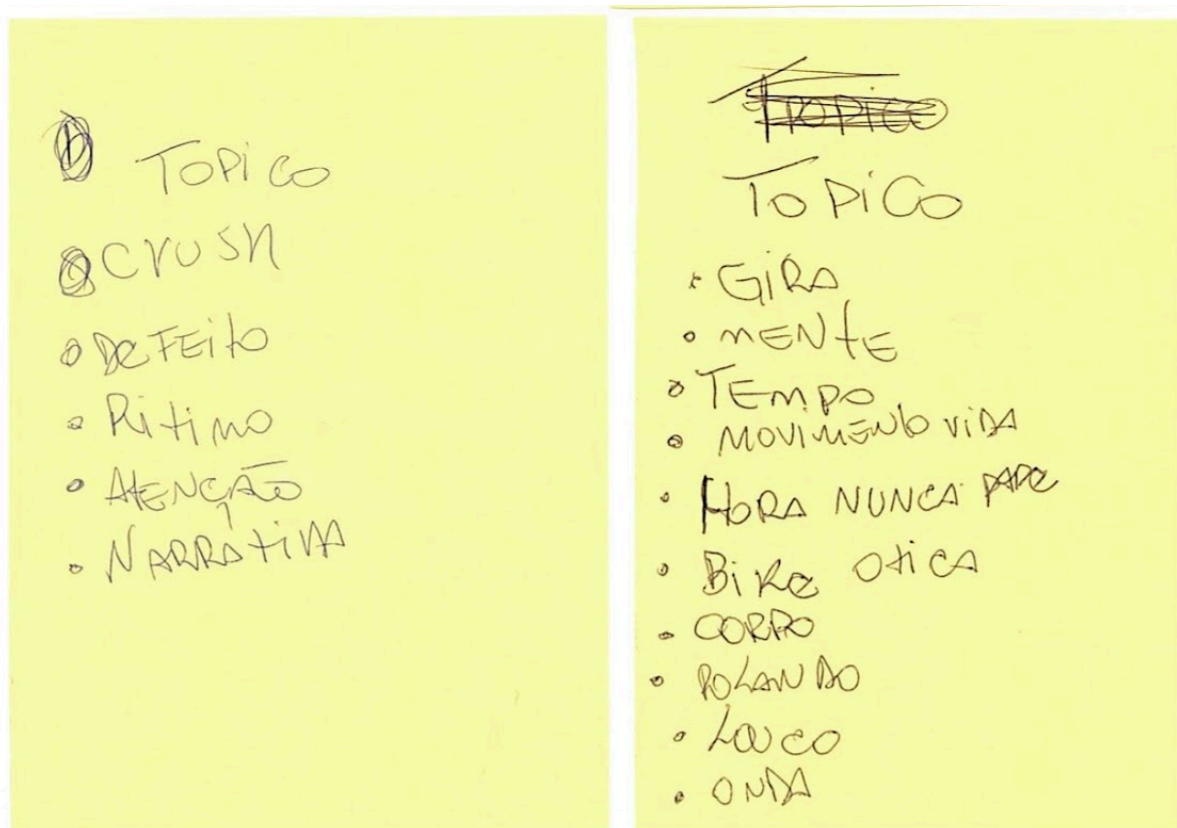 TOPICO
CRUSH
DEFEITO
RITIMO
ATENÇÃO
NARRATIVA
TROPICO
TOPICO
GIRA
MENTE
TEMPO
MOVIMENTO VIDA
HORA NUNCA PARE
BIKE OTICA
CORPO
ROLANDO
LOUCO
ONDA